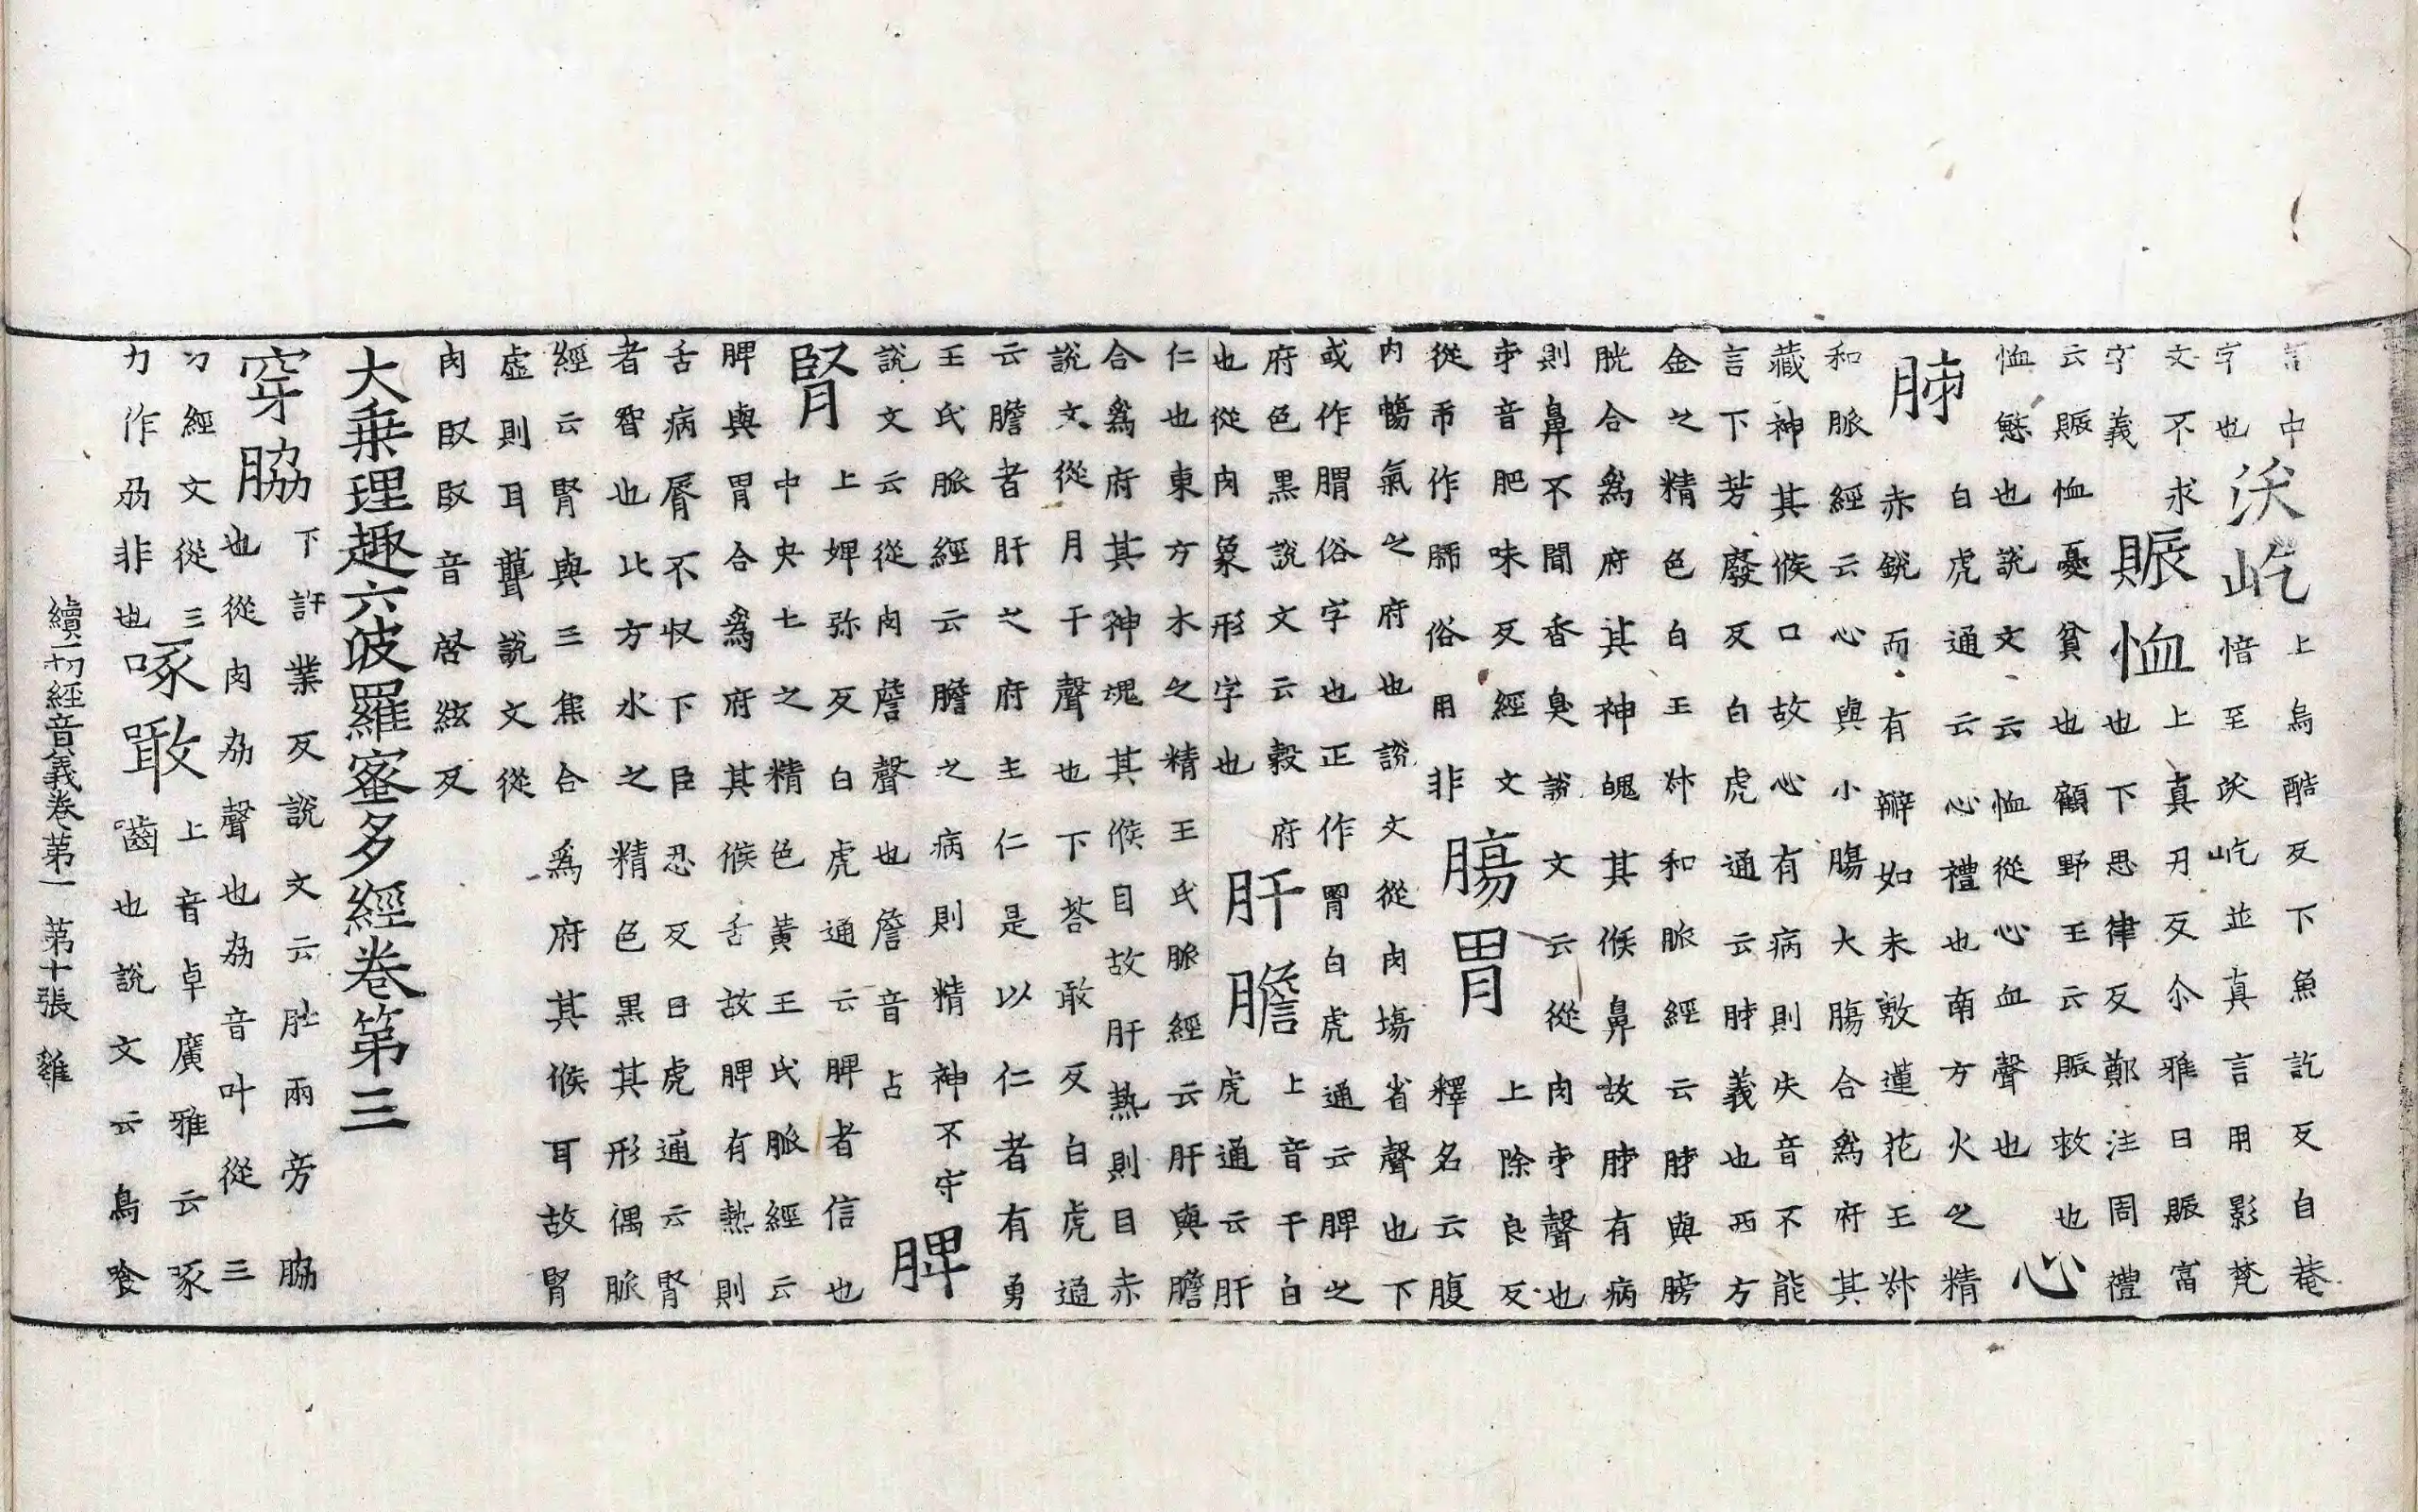 言中字也浂屹上烏酷反下魚訖反自菴愔至浂屹並真言用影梵
文不求字義賑恤上真刃反尒雅曰賑富也下思律反鄭注周禮
云賑恤憂貧也顧野王云賑救也恤慜也說文云恤從心血聲也心
肺白虎通云心禮也南方火之精赤銳而有瓣如未敷蓮花王叔
和脈經云心與小腸大腸合爲府其藏神其候口故心有病則失音不能
言下芳廢反白虎通云肺義也西方金之精色白王叔和脈經云肺與膀
胱合爲府其神魄其候鼻故肺有病則鼻不聞香臭說文云從肉巿聲也
巿音肥味反經文從帀作肺俗用非腸胃上除良反釋名云腹
内暢氣之府也說文從肉場省聲也下或作腪俗字也正作胃白虎通云脾之
府色黑說文云穀府也從肉象形字也肝膽上音干白虎通云肝
仁也東方木之精王氏脈經云肝與膽合爲府其神魂其候目故肝熱則目赤
說文從月干聲也下荅敢反白虎通云膽者肝之府主仁是以仁者有勇
王氏脈經云膽之病則精神不守說文云從肉詹聲也詹音占脾
腎上婢弥反白虎通云脾者信也中央土之精色黃王氏脈經云
脾與胃合爲府其候舌故脾有熱則舌病脣不収下臣忍反曰虎通云腎
者智也比方水之精色黑其形偶脈經云腎與三焦合爲府其候耳故腎
虛則耳聾說文從肉臤臤音啓絃反
大乗理趣六波羅蜜多經卷第三
穿脇下許業反說文云肚兩旁脇也從肉劦聲也劦音叶從三
刀經文從三力作刕非也啄噉上音卓廣雅云啄齒也說文云鳥喰
續一切經音義卷第一 第十張 雞